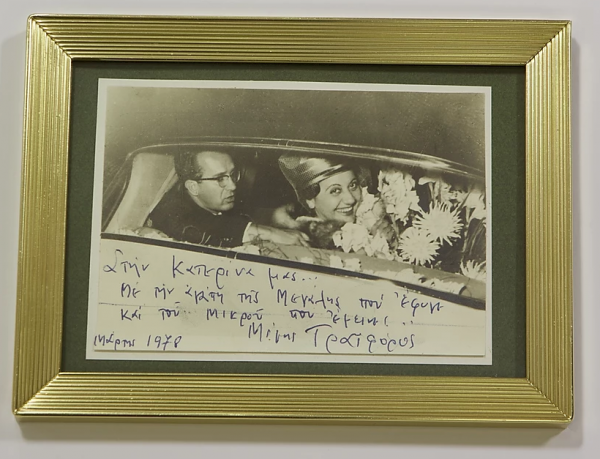 Στην Κατερίνα μας...
Με την αγάπη της Μεγάλης που έφυγε
και του Μικρού που έμεινε!..
Μίμης Τραϊφόρος
Μάρτης 1978